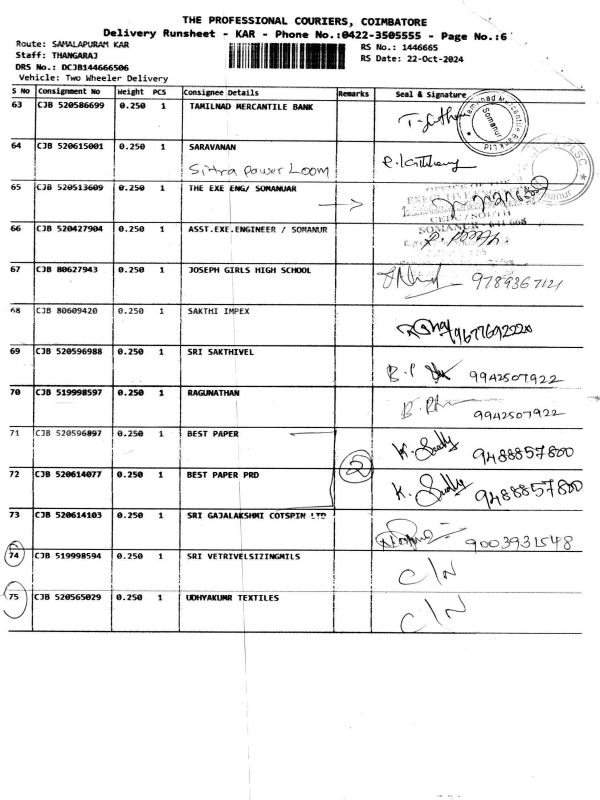 THE PROFESSIONAL COURIERS, COIMBATORE
Delivery Runsheet - KAR - Phone No.:0422-3505555 - Page No.:6
Route: SAMALAPURAM KAR
RS No.: 1446665
Staff: THANGARAJ
RS Date: 22-Oct-2024
DRS No.: DCJB144666506
Vehicle: Two Wheeler Delivery
S No Consignment No Weight PCS Consignee Details Remarks Seal & Signature
63 CJB 520586699 0.250 1 TAMILNAD MERCANTILE BANK
64 CJB 520615001 0.250 1 SARAVANAN
Sittra power Loom
65 CJB 520513609 0.250 1 THE EXE ENG/ SOMANUAR
66 CJB 520427904 0.250 1 ASST.EXE.ENGINEER / SOMANUR
67 CJB 80627943 0.250 1 JOSEPH GIRLS HIGH SCHOOL 9789367121
68 CJB 80609420 0.250 1 SAKTHI IMPEX
69 CJB 520596988 0.250 1 SRI SAKTHIVEL 9942507922
70 CJB 519998597 0.250 1 RAGUNATHAN 9942507922
71 CJB 520596897 0.250 1 BEST PAPER 9488857800
2
72 CJB 520614077 0.250 1 BEST PAPER PRD 9488857800
73 CJB 520614103 0.250 1 SRI GAJALAKSHMI COTSPIN LTD 9003931548
74 CJB 519998594 0.250 1 SRI VETRIVELSIZINGMILS C/N
75 CJB 520565029 0.250 1 UDHYAKUMR TEXTILES C/N